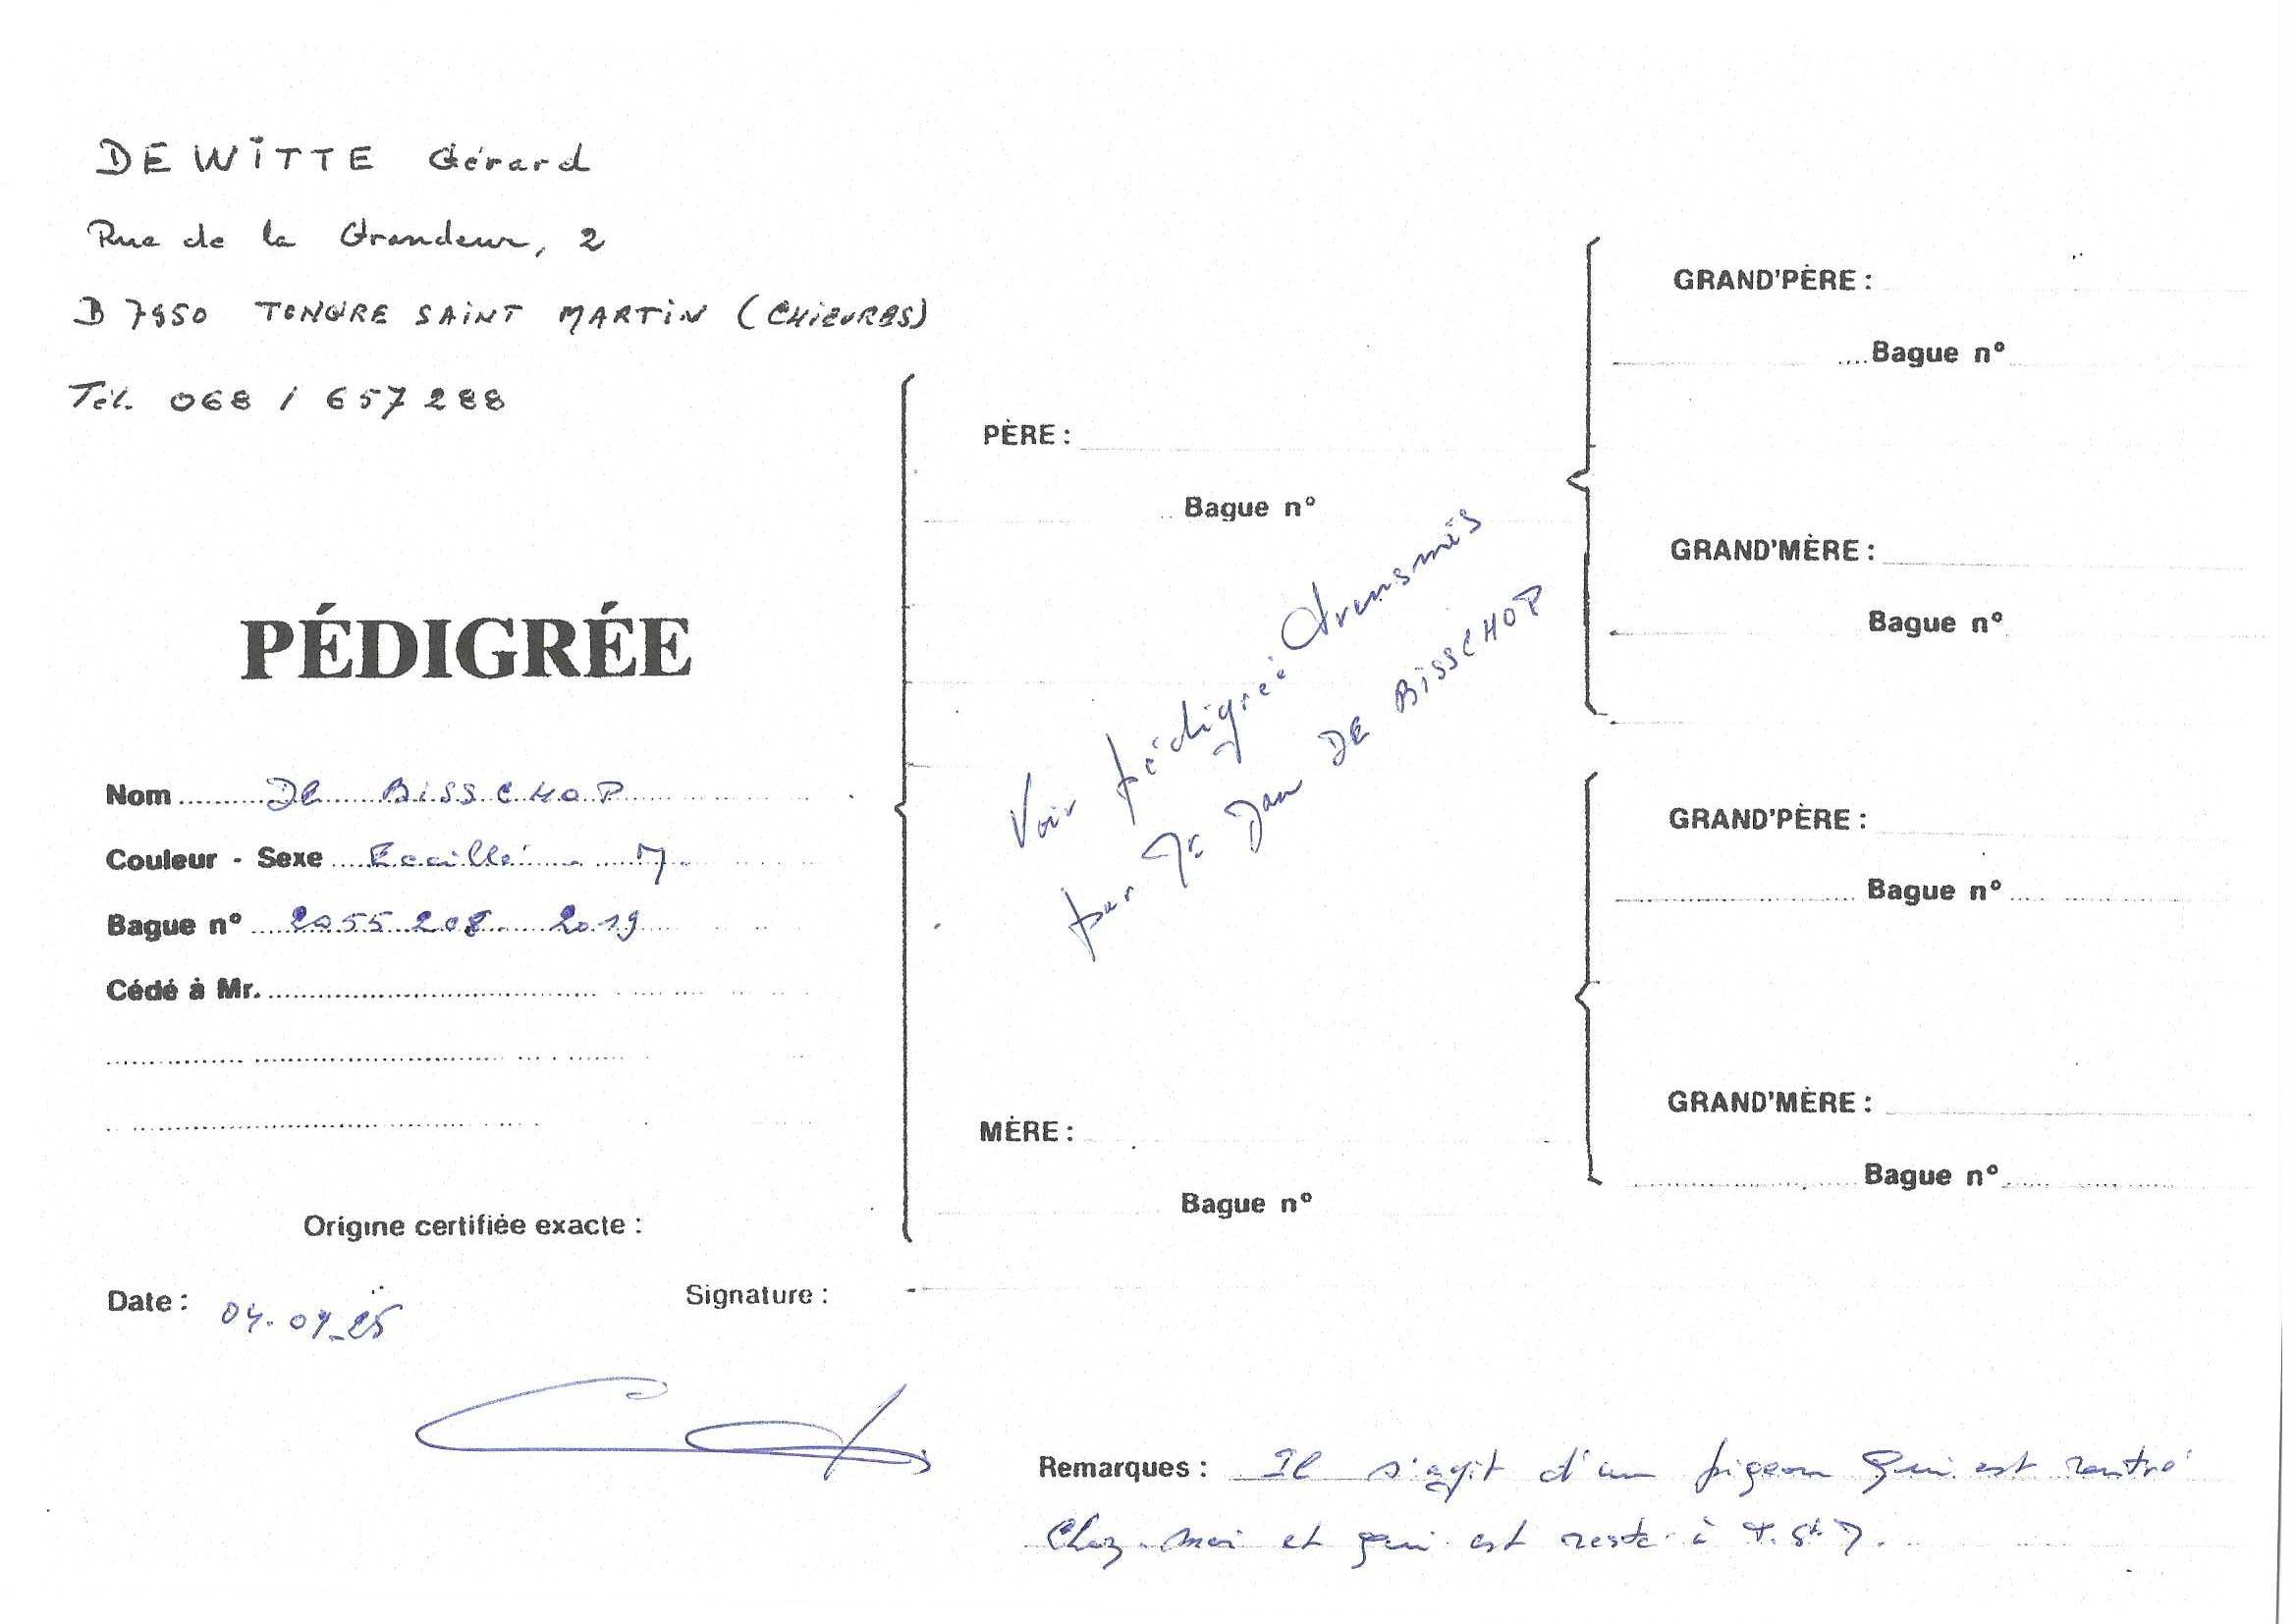 DEWITTE Gérard
Rue de la Grandeur, 2
B 7950 TONGRE SAINT MARTIN (CHIEVRES)
Tél. 068 / 657 288
PÉDIGRÉE
Nom De BISSCHOP
Couleur - Sexe Ecaillé M.
Bague n° 2055208 2019
Cédé à Mr.
Origine certifiée exacte :
Date : 04.09.25
Signature :
PÈRE :
Bague n°
Voir pédigrée transmis
par Mr Jean DE BISSCHOP
MÈRE :
Bague n°
GRAND'PÈRE :
Bague n°
GRAND'MÈRE :
Bague n°
GRAND'PÈRE :
Bague n°
GRAND'MÈRE :
Bague n°
Remarques : Il s'agit d'un pigeon qui est rentré
Chez moi et qui est resté à T. St M.